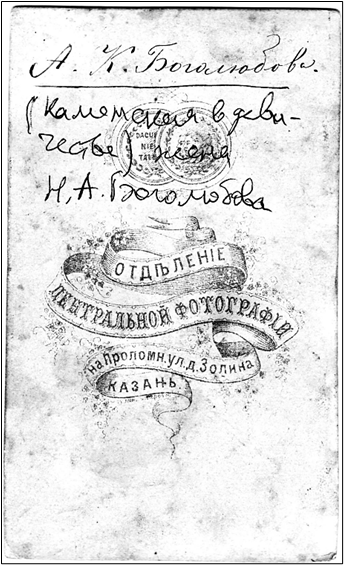 А. К. Боголюбова.
(Каменская в деви-
честве) жена
Н. А. Боголюбова
DAGUE
NIE
TALB
ОТДѢЛЕНІЕ
ЦЕНТРАЛЬНОЙ ФОТОГРАФІИ
на Проломн. ул. д. Золина
КАЗАНЬ.